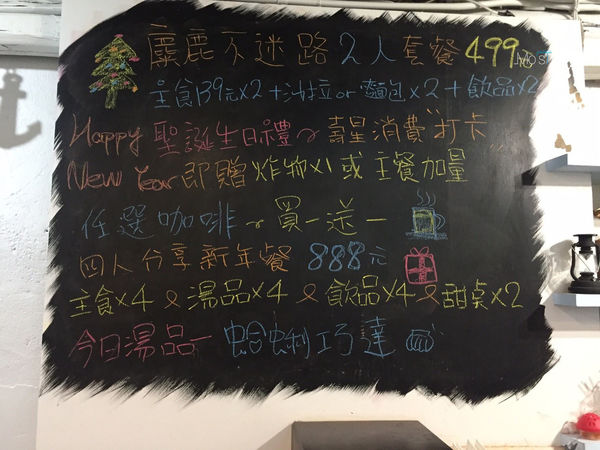 麋鹿不迷路 2人套餐 499
主食139元x2+沙拉or麵包x2+飲品x2
Happy 聖誕生日禮~壽星消費"打卡"
New Year 即贈炸物x1或主餐加量
任選咖啡~買一送一
四人分享新年餐 888元
主食x4 & 湯品x4 & 飲品x4 & 甜桌x2
今日湯品- 蛤蜊巧達